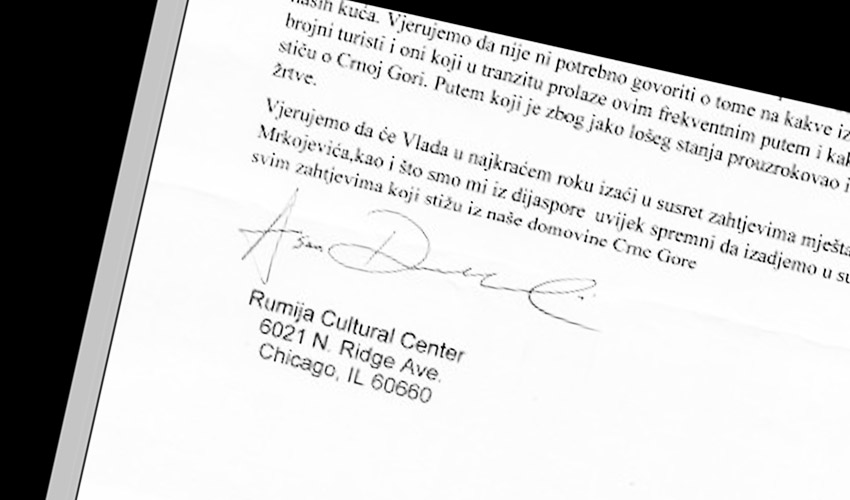 naših kuća. Vjerujemo da nije ni potrebno govoriti o tome na kakve
brojni turisti i oni koji u tranzitu prolaze ovim frekventnim putem i
stiču o Crnoj Gori. Putem koji je zbog jako lošeg stanja prouzrokovao
žrtve.
Vjerujemo da će Vlada u najkraćem roku izaći u susret zahtjevima
Mrkojevića,kao i što smo mi iz dijaspore uvijek spremni da izadjemo u
svim zahtjevima koji stižu iz naše domovine Crne Gore
Rumija Cultural Center
6021 N. Ridge Ave.
Chicago, IL 60660